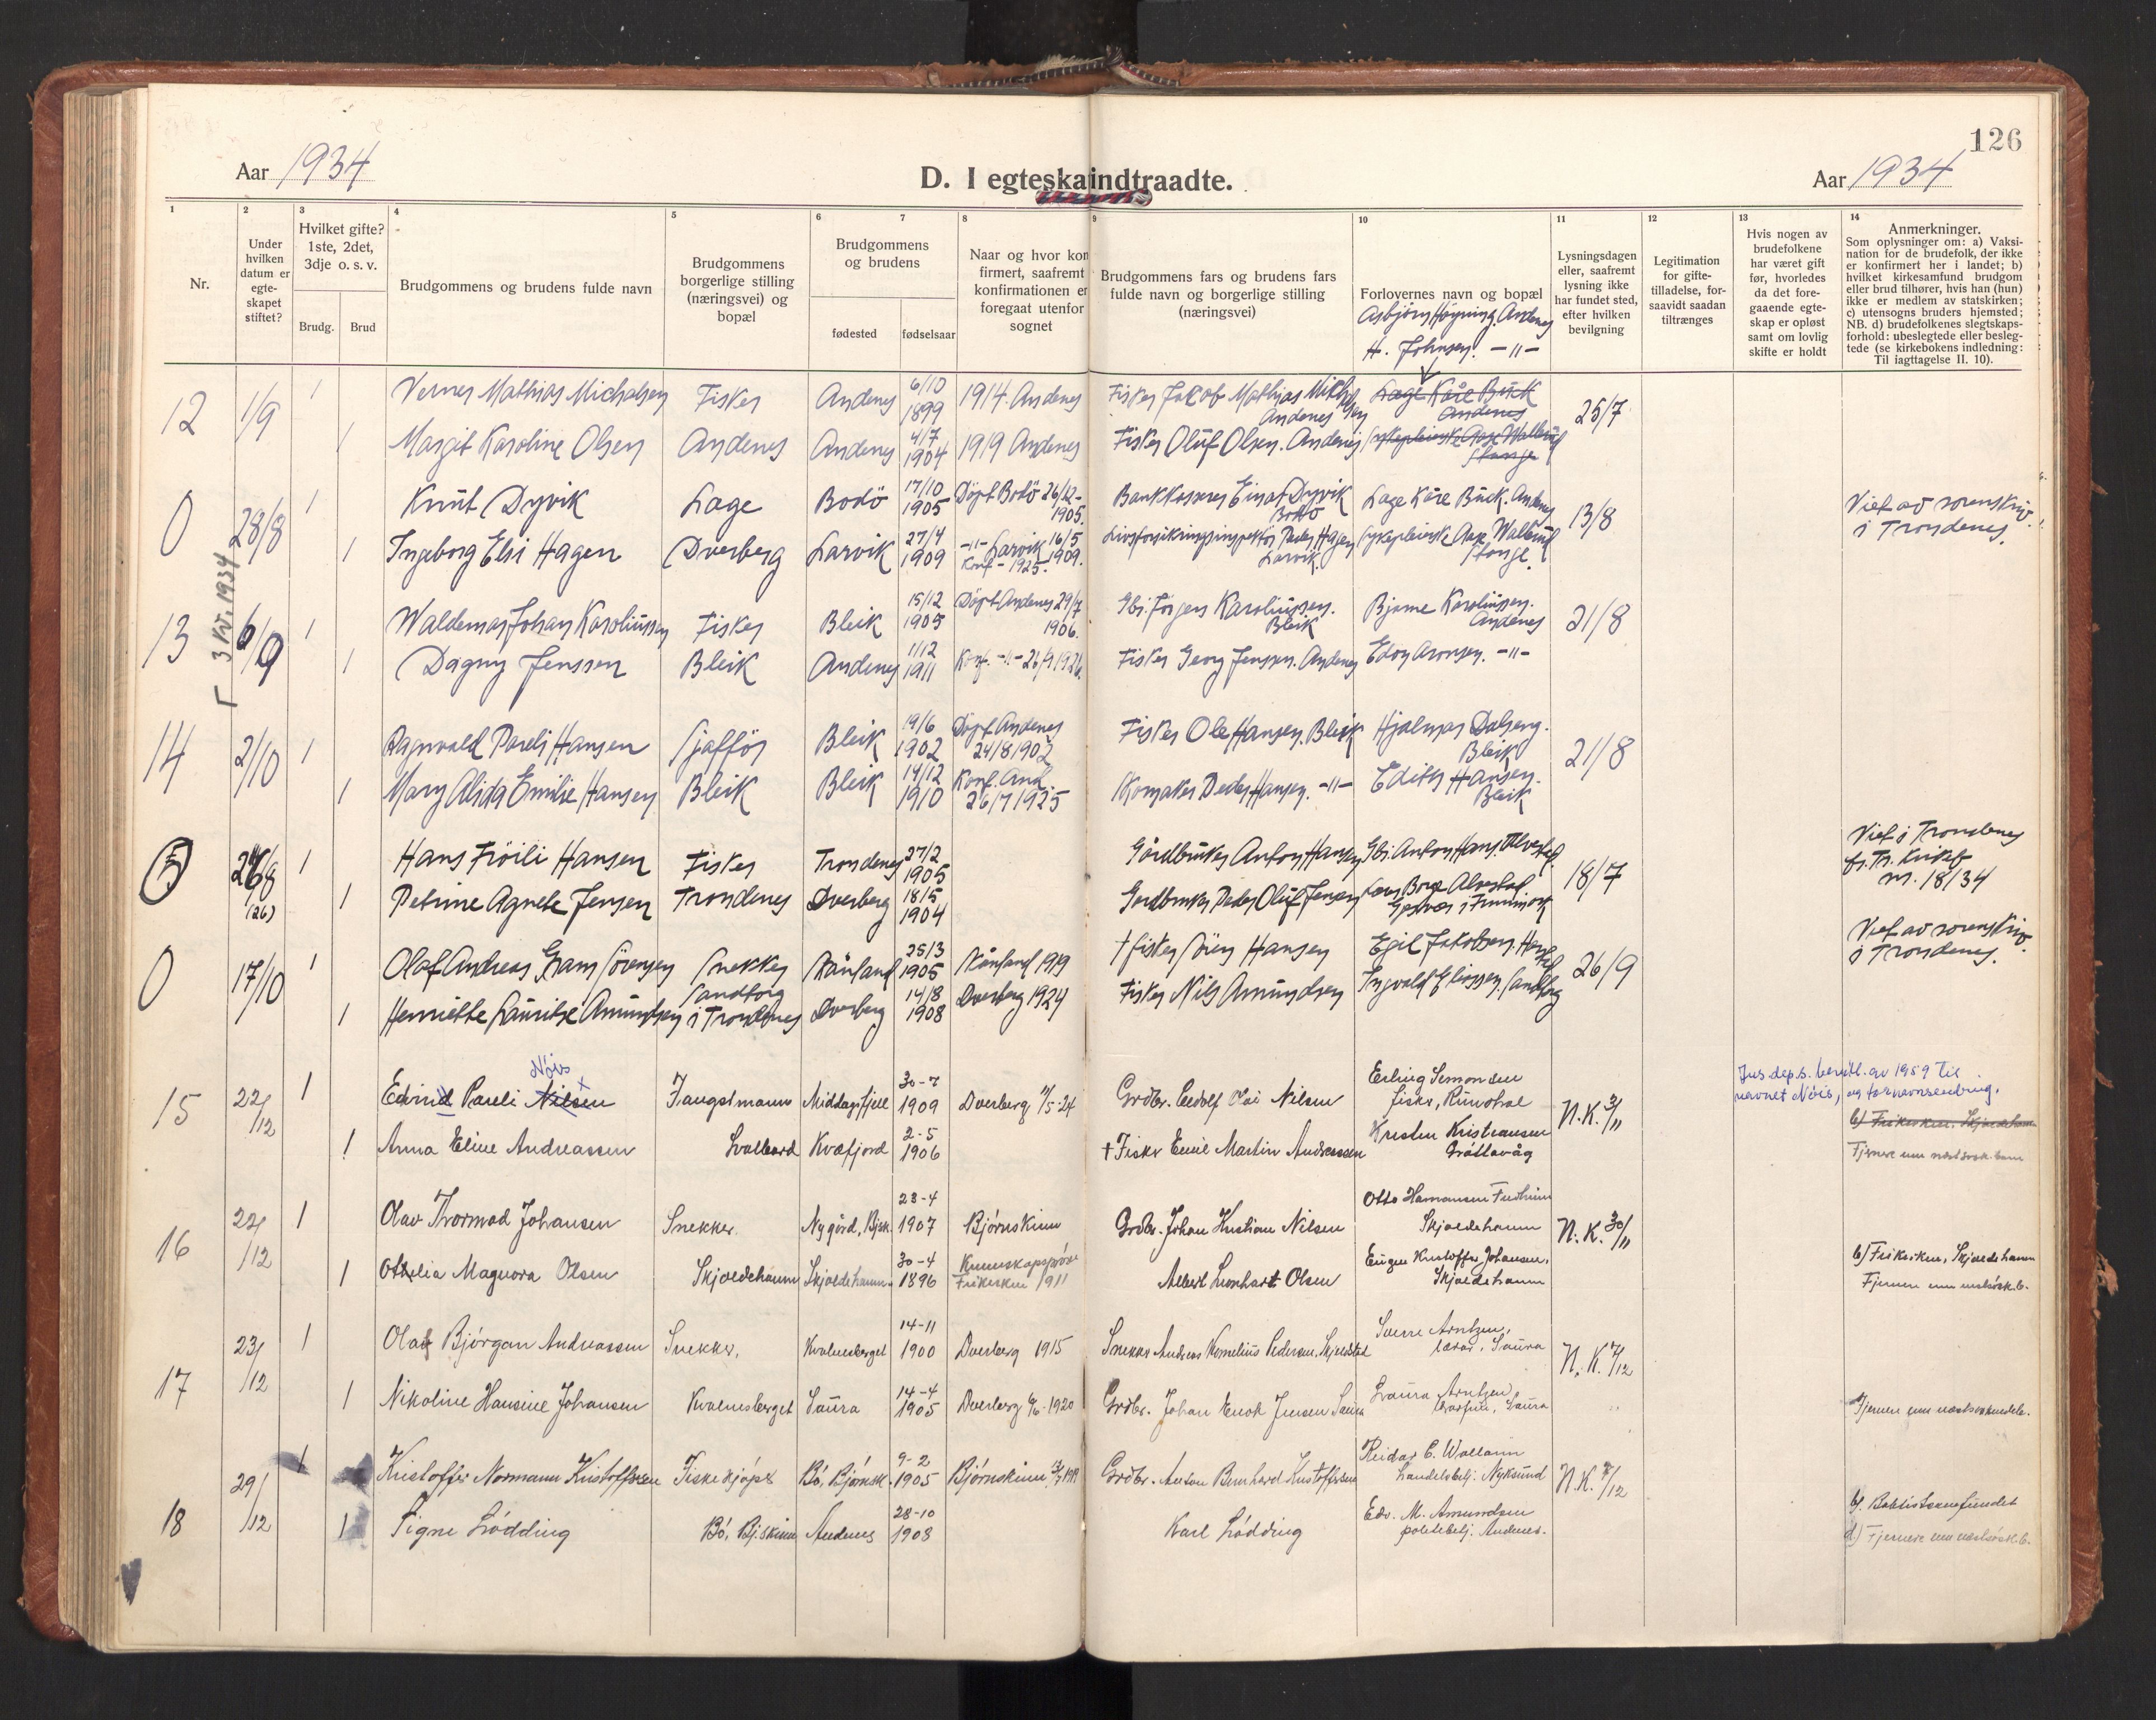 126
Aar 1934
D. I egteskaindtraadte.
Aar 1934
1 2 3 4 5 6 7 8 9 10 11 12 13 14
Nr.
Under hvilken datum er egte-skapet stiftet?
Hvilket gifte? 1ste, 2det, 3dje o. s. v.
Brudg.
Brud
Brudgommens og brudens fulde navn
Brudgommens borgerlige stilling (næringsvei) og bopæl
Brudgommens og brudens
fødested
fødselsaar
Naar og hvor kon
firmert, saafremt
konfirmationen er
foregaat utenfor
sognet
Brudgommens fars og brudens fars
fulde navn og borgerlige stilling
(næringsvei)
Forlovernes navn og bopæl
Lysningsdagen
eller, saafremt
lysning ikke
har fundet sted,
efter hvilken
bevilgning
Legitimation
for gifte-
tilladelse, for-
saavidt saadan
tiltrænges
Hvis nogen av
brudefolkene
har været gift
før, hvorledes
da det fore-
gaaende egte-
skap er opløst
samt om lovlig
skifte er holdt
Anmerkninger.
Som oplysninger om: a) Vaksi-
nation for de brudefolk, der ikke
er konfirmert her i landet; b)
hvilket kirkesamfund brudgom
eller brud tilhører, hvis han (hun)
ikke er medlem av statskirken;
c) utensogns bruders hjemsted;
NB. d) brudefolkenes slegtskaps-
forhold: ubeslegtede eller besleg-
tede (se kirkebokens indledning:
Til iagttagelse II. 10).
Asbjörn Høyning. Andenes
H. Johnsen. -"-
12 1/9 1 Verner Mathias Michalsen Fisker Andenes 6/10 1899 1914 Andenes Fisker Jakob Mathias Michalsen Andenes Lage Kåre Bück Andenes 25/7
1 Margit Karoline Olsen Andenes Andenes 4/7 1904 1919 Andenes Fisker Oluf Olsen. Andenes Sykepleierske Aase Wallerud Stange
0 28/8 1 Knut Dyvik Lage Bodö 17/10 1905 Döpt Bodö 26/12-1905. Bankkasserer Einar Dyvik Bodö Lage Kåre Bück. Andenes 13/8 Viet av sorenskriv. i Trondenes.
1 Ingeborg Elsi Hagen Dverberg Larvik 27/4 1909 -"- Larvik 16/5 1909. Konf - 1925. Livsforsikringsinspektör Peder Hagen Larvik. Sykepleierske Aase Wallerud Stange.
3 kv. 1934
13 6/9 1 Waldemar Johan Karoliussen Fisker Bleik 15/12 1905 Döpt Andenes 29/7 1906. Gbr. Jörgen Karoliussen. Bleik Bjarne Karoliussen. Andenes 21/8
1 Dagny Jenssen Bleik Andenes 1/12 1911 Konf. -"- 26/9 1926. Fisker Georg Jenssen. Andenes Edvy Aronsen. -"-
14 2/10 1 Ragnvald Pareli Hansen Sjafför Bleik 19/6 1902 Döpt Andenes 24/8 1902 Fisker Ole Hansen. Bleik Hjalmar Dalseng. Bleik 21/8
1 Mary Alida Emilie Hansen Bleik Bleik 14/12 1910 Konf. And. 26/7 1925 Skomaker Peder Hansen. -"- Edith Hansen. Bleik
0 26/8 (26) 1 Hans Fröili Hansen Fisker Trondenes 27/2 1905 Gårdbruker Anton Hansen Gbr. Anton Hans. Alvestad 18/7 Viet i Trondenes fr. Tr. kirkeb nr. 18/34
1 Petrine Agnete Jensen Trondenes Dverberg 18/5 1904 Gardbruker Peder Oluf Jensen
0 17/10 1 Olaf Andreas Grans Sörensen Snekker Sandtorg Rånland 25/3 1905 Rånland 1919 † fisker Sören Hansen Egil Jakobsen. 26/9 Viet av sorenskriv. i Trondenes.
1 Henriette Lauritse Amundsen i Trondenes Dverberg 14/8 1908 Dverberg 1924 Fisker Nils Amundsen Ingvald Eliassen. Sandtorg
Jus. dep.s. bevill. av 1959 til
navnet Nöis, og fornavnsendring.
15 22/12 1 Edvind Pauli Nilsen x Nöis Fangstmann Middagsfjell 30-7 1909 Dverberg 11/5-24 Grdbr. Ludolf Olai Nilsen Erling Simonsen fisker, N.K. 3/11 b) Frikirken. Skjoldehamn
1 Anna Eline Andreassen Svalbard Kvæfjord 2-5 1906 † Fisker Emil Martin Andreassen Kristen Kristiansen Gråttavåg Fjernere enn næstsøsk.barn
16 22/12 1 Olav Thormod Johansen Snekker. Nygård, Bjsk. 23-4 1907 Björnskinn Grdbr. Johan Kristian Nilsen Otto Hamansen Skjoldehamn N.K. 30/11
1 Othelia Magnora Olsen Skjoldehamn Skjoldehamn 30-4 1896 Kunnskapspröve Frikirken 1911 Albert Leonhart Olsen Eugen Kristoffer Johansen, Skjoldehamn b) Frikirken, Skjoldehamn Fjernere enn næstsøsk.b.
17 23/12 1 Olaf Björgan Andreassen Snekker, Kvalnesberget 14-11 1900 Dverberg 1915 Snekker Andreas Kornelius Pedersen, Skjolstad Sverre Arntzen, lærer, Saura N.K. 7/12
1 Nikoline Hansine Johansen Kvalnesberget Saura 14-4 1905 Dverberg 6/6-1920 Grdbr. Johan Enok Jensen Saura Laura Arntzen lærerfru, Saura Fjernere enn næstsøskendeb.
18 29/12 1 Kristoffer Normann Kristoffersen Fiskekjöper Bö, Björnsk. 9-2 1905 Björnskinn Grdbr. Anton Bernhard Kristoffersen Reidar C. Wallann handelsbetj. Nyksund N.K. 7/12
1 Signe Lödding Bö, Bj.skinn Andenes 28-10 1908 Karl Lödding Edv. M. Amundsen politibetj. Andenes. b). Baptistsamfundet d) Fjernere enn næstsøsk.b.